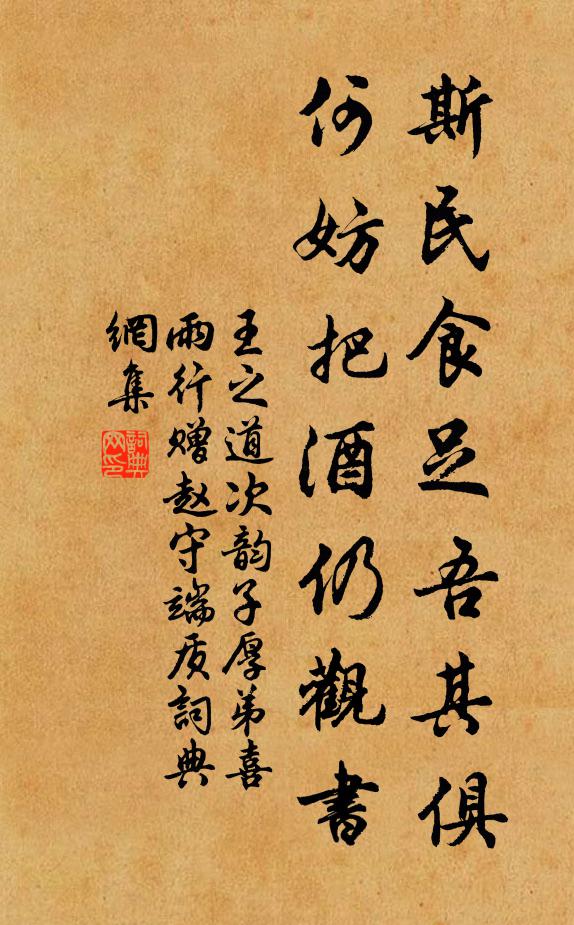 斯民食足吾其俱
何妨把酒仍觀書
王之道次韵子厚弟喜
雨行赠赵守端质詞典
網集
詞典
网印